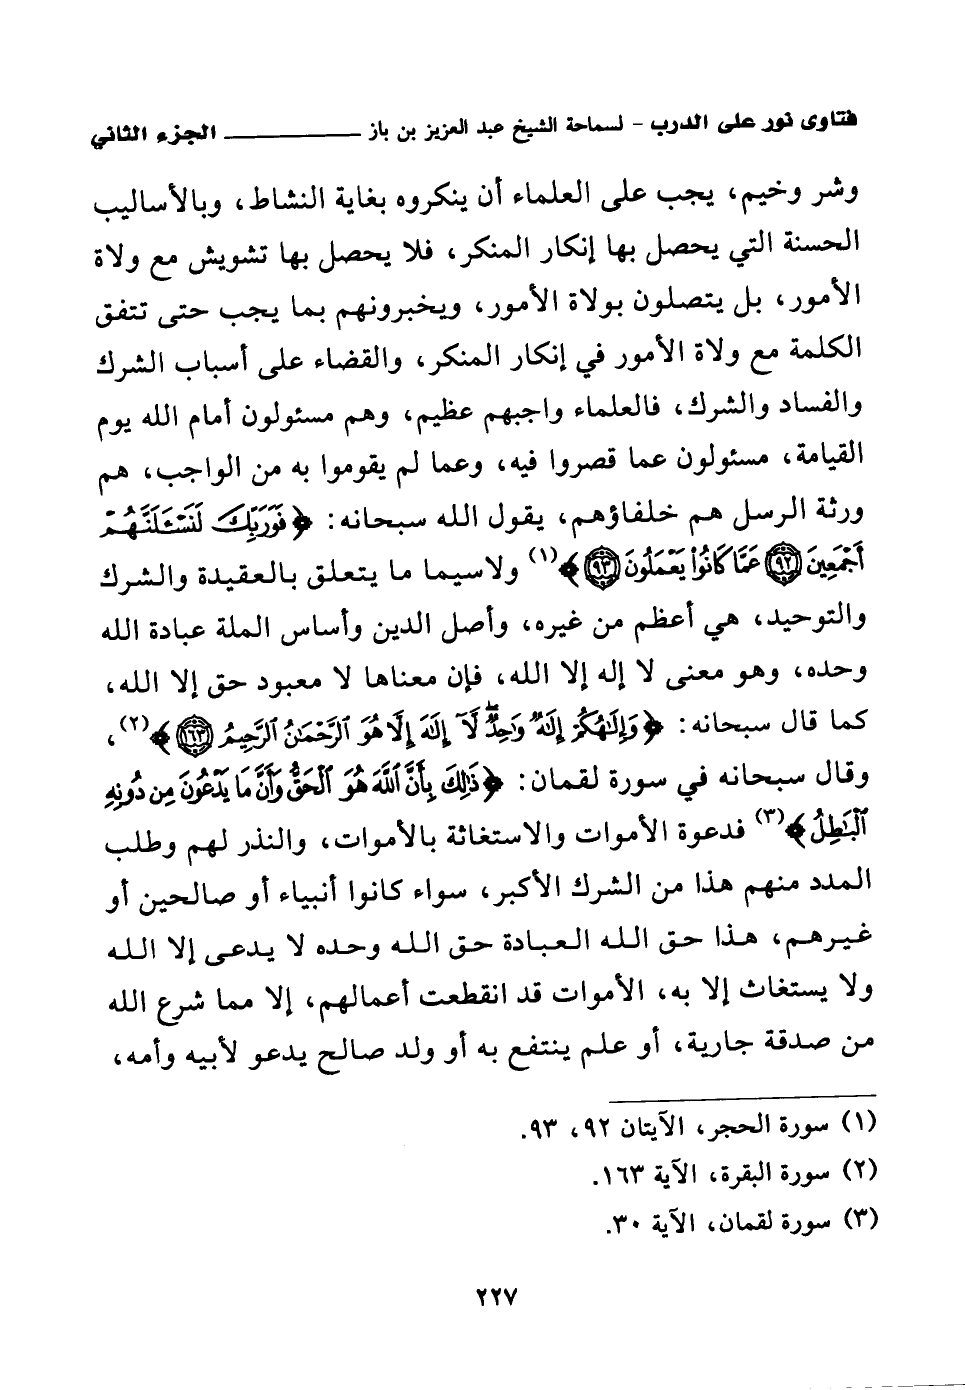 فتاوى نور على الدرب - لسماحة الشيخ عبد العزيز بن باز ــــــــــ الجزء الثاني
وشر وخيم، يجب على العلماء أن ينكروه بغاية النشاط، وبالأساليب
الحسنة التي يحصل بها إنكار المنكر، فلا يحصل بها تشويش مع ولاة
الأمور، بل يتصلون بولاة الأمور، ويخبرونهم بما يجب حتى تتفق
الكلمة مع ولاة الأمور في إنكار المنكر، والقضاء على أسباب الشرك
والفساد والشرك، فالعلماء واجبهم عظيم، وهم مسئولون أمام الله يوم
القيامة، مسئولون عما قصروا فيه، وعما لم يقوموا به من الواجب، هم
ورثة الرسل هم خلفاؤهم، يقول الله سبحانه: ﴿فَوَرَبِّكَ لَنَسْـَٔلَنَّهُمْ
أَجْمَعِينَ ﴿٩٢﴾ عَمَّا كَانُوا۟ يَعْمَلُونَ ﴿٩٣﴾﴾(١) ولاسيما ما يتعلق بالعقيدة والشرك
والتوحيد، هي أعظم من غيره، وأصل الدين وأساس الملة عبادة الله
وحده، وهو معنى لا إله إلا الله، فإن معناها لا معبود حق إلا الله،
كما قال سبحانه: ﴿وَإِلَٰهُكُمْ إِلَٰهٌ وَٰحِدٌ ۖ لَّآ إِلَٰهَ إِلَّا هُوَ ٱلرَّحْمَٰنُ ٱلرَّحِيمُ ﴿١٦٣﴾﴾(٢)،
وقال سبحانه في سورة لقمان: ﴿ذَٰلِكَ بِأَنَّ ٱللَّهَ هُوَ ٱلْحَقُّ وَأَنَّ مَا يَدْعُونَ مِن دُونِهِ
ٱلْبَٰطِلُ﴾(٣) فدعوة الأموات والاستغاثة بالأموات، والنذر لهم وطلب
المدد منهم هذا من الشرك الأكبر، سواء كانوا أنبياء أو صالحين أو
غيرهم، هذا حق الله العبادة حق الله وحده لا يدعى إلا الله
ولا يستغاث إلا به، الأموات قد انقطعت أعمالهم، إلا مما شرع الله
من صدقة جارية، أو علم ينتفع به أو ولد صالح يدعو لأبيه وأمه،
(١) سورة الحجر، الآيتان ٩٢، ٩٣.
(٢) سورة البقرة، الآية ١٦٣.
(٣) سورة لقمان، الآية ٣٠.
٢٢٧